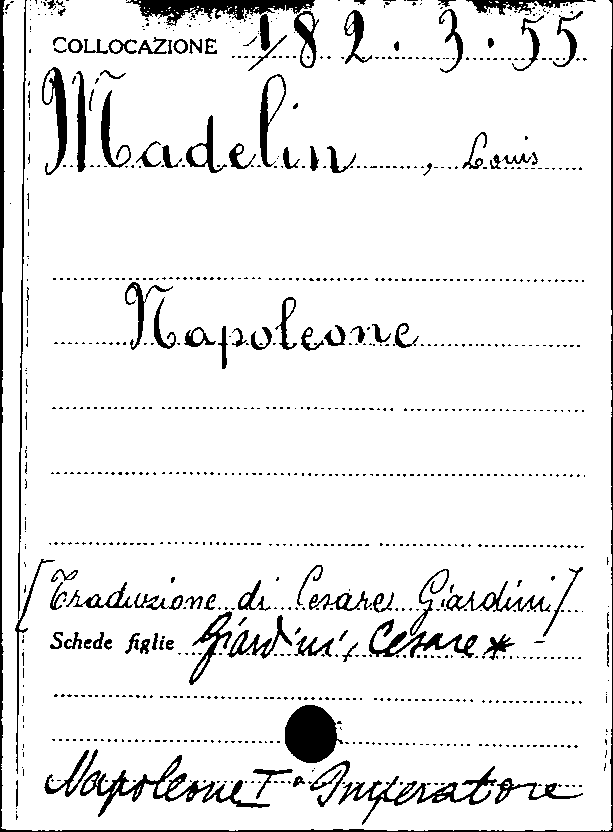 COLLOCAZIONE 1/82.3.55
Madelin, Louis
Napoleone
[Traduzione di Cesare Giardini]
Schede figlie Giardini, Cesare * -
Napoleone I° Imperatore